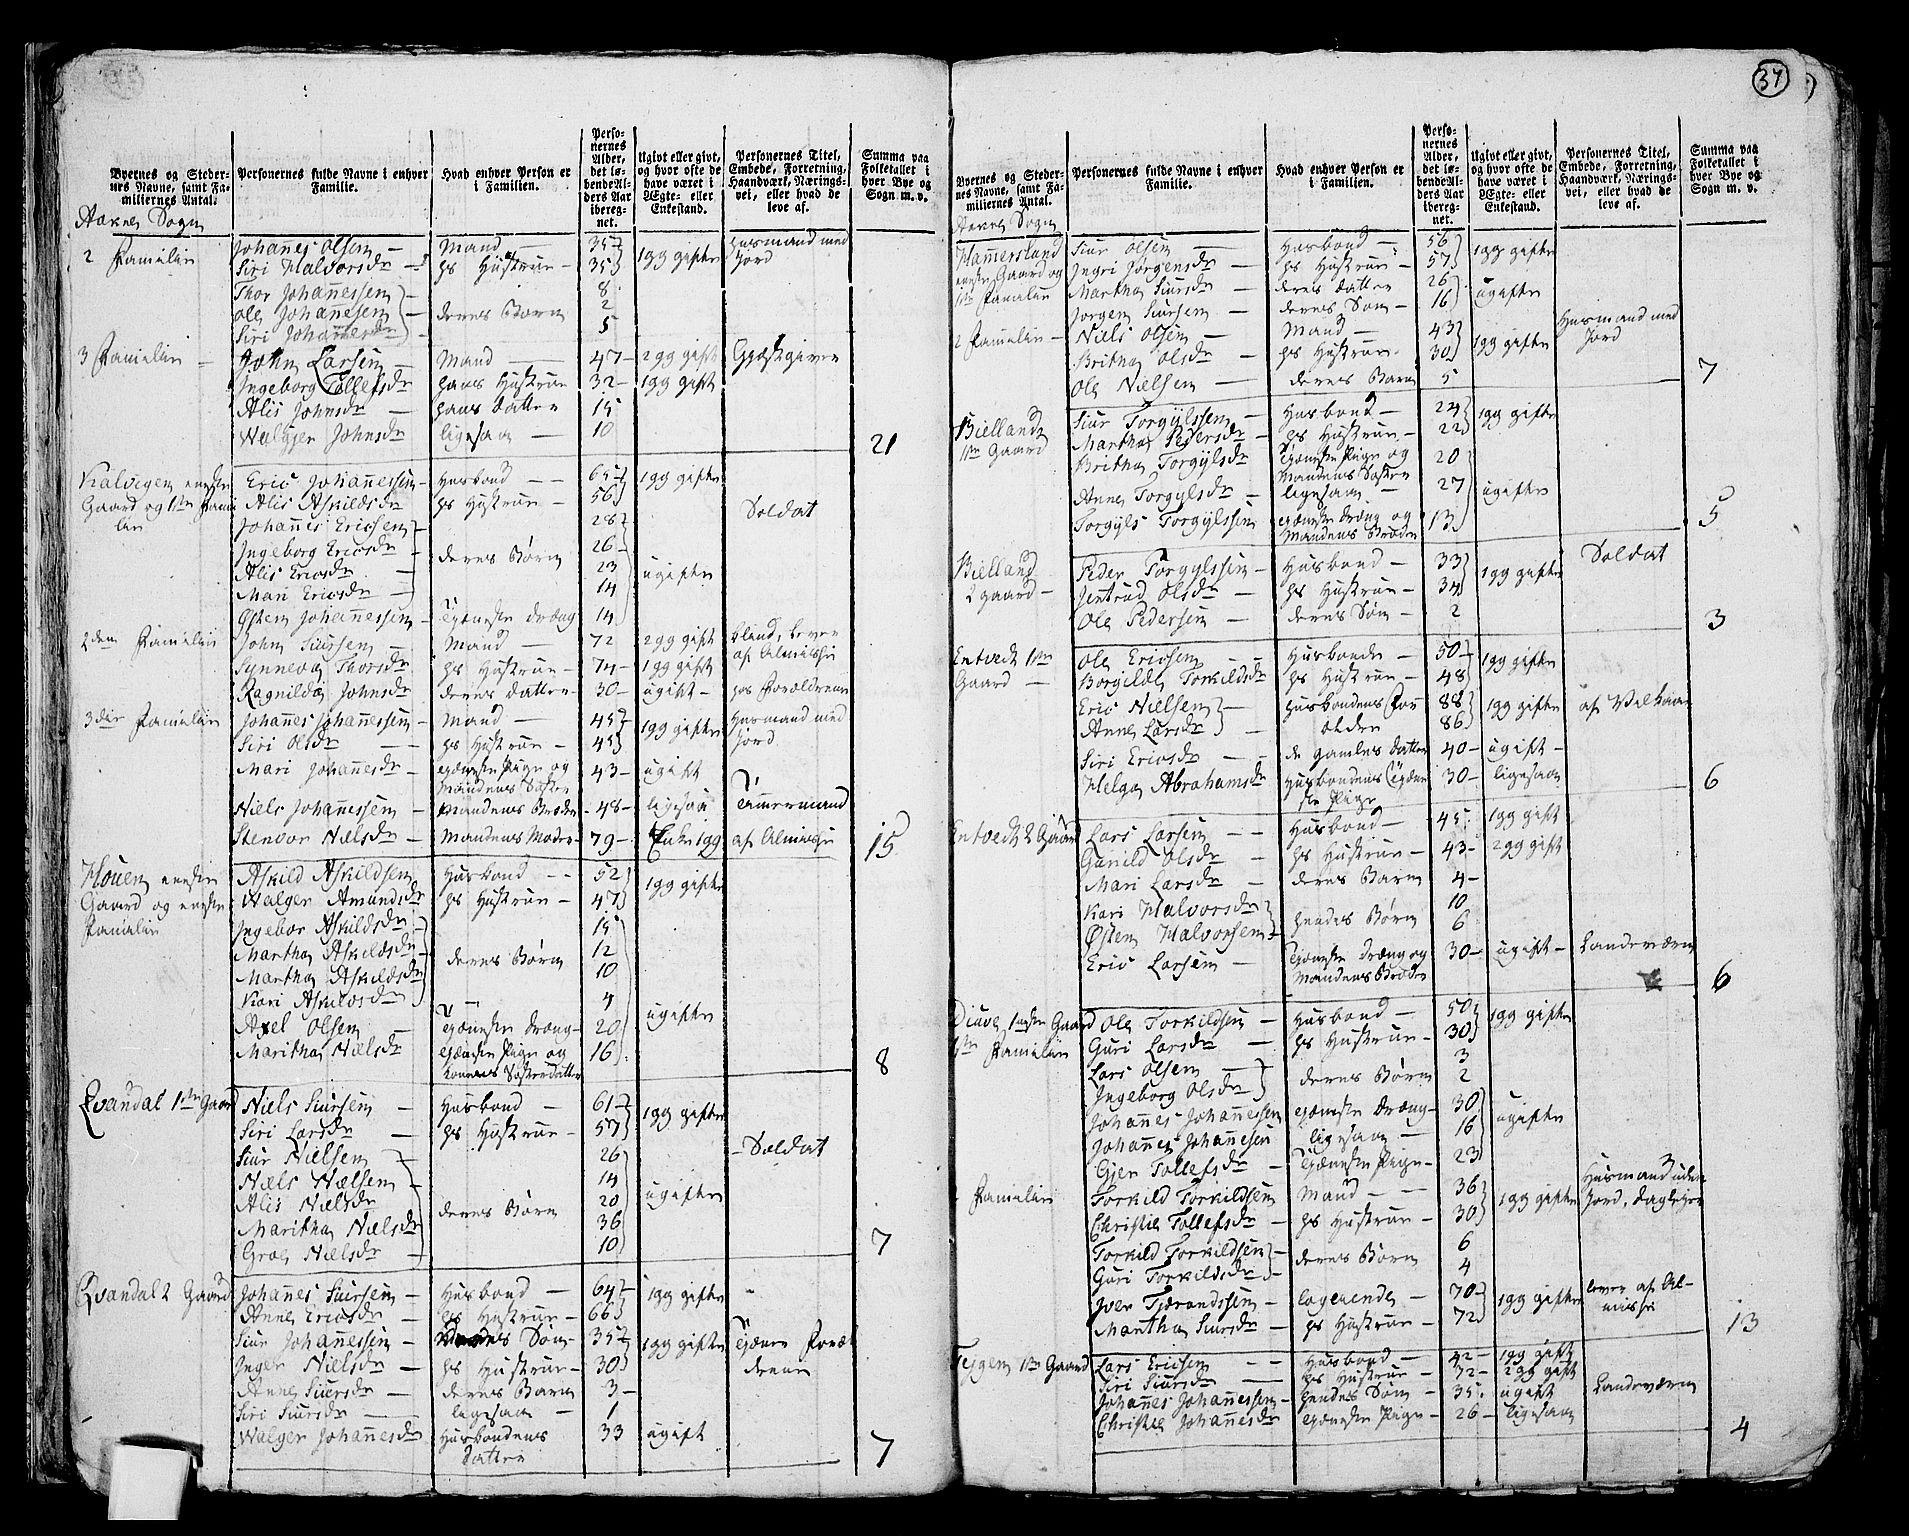 37
Byernes og Steder-
nes Navne, samt Fa-
miliernes Antal.
Personernes fulde Navne i enhver
Familie.
Hvad enhver Person er
i Familien.
Perso-
nernes
Alder,
det lø-
bende Al-
ders Aar
ibereg-
net.
Ugivt eller givt,
og hvor ofte de
have været i
Ægte- eller
Enkestand.
Personernes Titel,
Embede, Forretning,
Haandværk, Nærings-
vei, eller hvad de
leve af.
Summa paa
Folketallet i
hver Bye og
Sogn m. v.
Sogn
2 Familie Johanes Olsen Mand 35 1gg gifte Husmand med
Siri Halvorsdr hs Hustrue 35 Jord
Thor Johannessen 8
Ole Johanesen deres Børn 2
Siri Johannesdr 5
3 Familie John Larsen Mand 47 2gg gift Gjæstgiver
Ingeborg Tollefsdr hans Hustrue 32 1gg gift
Alis Johnsdr hans datter 15
Walgjer Johnsdr ligesaa 10
21
Kalvigen eneste Eric Johannessen Husbond 65 1gg gifte
Gaard og 1ste Fami Alis Askildsdr hs Hustrue 56
lie Johannes Ericssen 28 Soldat
Ingeborg Ericsdr deres Børn 26
Alis Ericsdr 23 ugifte
Mari Ericsdr 14
Østen Johannessen Tjeneste dreng 14
2den Familie John Siursen Mand 72 2gg gift blind, lever
Synneva Thorsdr hs Hustrue 74 1gg gift af Almisse
Ragnilda Johnsdr deres datter 30 ugift hos Forældrene
3die Familie Johannes Johannessen Mand 45 1gg gifte Husmand med
Siri Olsdr hs Hustrue 45 Jord
Mari Johannesdr tjeneste Pige og 43 ugift
Mandens Søster
Niels Johannessen Mandens Broder 48 ligesaa Tømermand
Stendor Nielsdr Mandens Moder 79 Enke 1gg af Almisse
15
Houen eneste Askild Askildsen Husbond 52 1gg gifte
Gaard og eneste Walger Amundsdr hs Hustrue 47
Familie Ingebor Askildsdr 15
Martha Askildsdr deres Børn 12
Martha Askildsdr 10
Kari Askildsdr 4
Axel Olsen Tjeneste dreng 20 ugifte
Maritha Nielsdr tjeneste Pige og 16
Konens Søsterdatter
8
Qvandal 1ste Gaard Niels Siursen Husbond 61 1gg gifte
Siri Larsdr hs Hustrue 57
Siur Nielsen 26 Soldat
Niels Nielsen 14
Alis Nielsdr deres Børn 20 ugifte
Maritha Nielsdr 36
Groe Nielsdr 10
7
Qvandal 2 Gaard Johanes Siursen Husbond 64 1gg gifte
Anne Ericsdr hs Hustrue 66
Siur Johannessen deres Søn 35 1gg gifte Tjener Foræl
Inger Nielsdr hs Hustrue 30 drene
Anne Siursdr deres Barn 3
Siri Siursdr ligesaa 1
Walger Johannesdr Husbondens 33 ugift
datter
7
Byernes og Steder-
nes Navne, samt Fa-
miliernes Antal.
Personernes fulde Navne i enhver
Familie.
Hvad enhver Person er
i Familien.
Perso-
nernes
Alder,
det lø-
bende Al-
ders Aar
ibereg-
net.
Ugivt eller givt,
og hvor ofte de
have været i
Ægte- eller
Enkestand.
Personernes Titel,
Embede, Forretning,
Haandværk, Nærings-
vei, eller hvad de
leve af.
Summa paa
Folketallet i
hver Bye og
Sogn m. v.
Sogn
Hamersland Siur Olsen Husbond 56 1gg gifte
eneste Gaard og Ingri Jørgensdr hs Hustrue 57
1ste Familie Martha Siursdr deres datter 26 ugifte
Jørgen Siursen deres Søn 16
2 Familie Niels Olsen Mand 43 1gg gifte Husmand med
Britha Olsdr hs Hustrue 30 Jord
Ole Nielsen deres Barn 5
7
Bielland Siur Torgylssen Husbond 24 1gg gifte
1ste Gaard Martha Pedersdr hs Hustrue 22
Britha Torgylsdr Tjeneste Pige og 20
Mandens Søster
Anne Torgylsdr ligesaa 27 ugifte
Torgyls Torgylssen tjeneste dreng og 13
Mandens Broder
5
Bielland Peder Torgylssen Husbond 33 1gg gifte Soldat
2 gaard Jentrud Olsdr hs Hustrue 34
Ole Pedersen deres Søn 2
3
Entvedt 1ste Ole Ericsen Husbonde 50 1gg gifte
Gaard Borgilde Torkildsdr hs Hustrue 48
Eric Nielsen Husbondens For 88 1gg gifte af Vilkaar
Anne Larsdr ældre 86
Siri Ericsdr de gamles datter 40 ugift
Helga Abrahamsdr Husbondens Tjene 30 ligesaa
ste Pige
6
Entvedt 2 Gaard Lars Larsen Husbond 45 1gg gift
Gunild Olsdr hs Hustrue 43 2gg gift
Mari Larsdr deres Barn 4
Kari Halvorsdr hendes Børn 10
Østen Halvorsen 6
Eric Larsen Tjeneste dreng og 30 ugift Landeværn
Mandens Broder
6
Diuve Gaard Ole Torkildsen Husbond 50 1gg gifte
1ste Familie Guri Larsdr hs Hustrue 30
Lars Olsen deres Børn 3
Ingeborg Olsdr 2
Johannes Johannessen tjeneste dreng 30 ugifte
Johannes Johannesen ligesaa 16
Gjer Tollefsdr Tjeneste Pige 23
Familie Torkild Torkildsen Mand 36 1gg gifte Husmand uden
Christie Tollefsdr hs Hustrue 30 Jord, daglejer
Torkild Torkildsen deres Børn 6
Guri Torkildsdr 4
Iver Tjerandssen logerende 70 1gg gifte lever af Al-
Martha Siursdr hs Hustrue 72 misse
13
1ste Gaard Lars Ericsen Husbond 42 1gg gift
Siri Siursdr hs Hustrue 32 2gg gift
Johanes Johannessen hendes Søn 35 ugift Landeværn
Christie Johannesdr tjeneste Pige 26 ligesaa
4